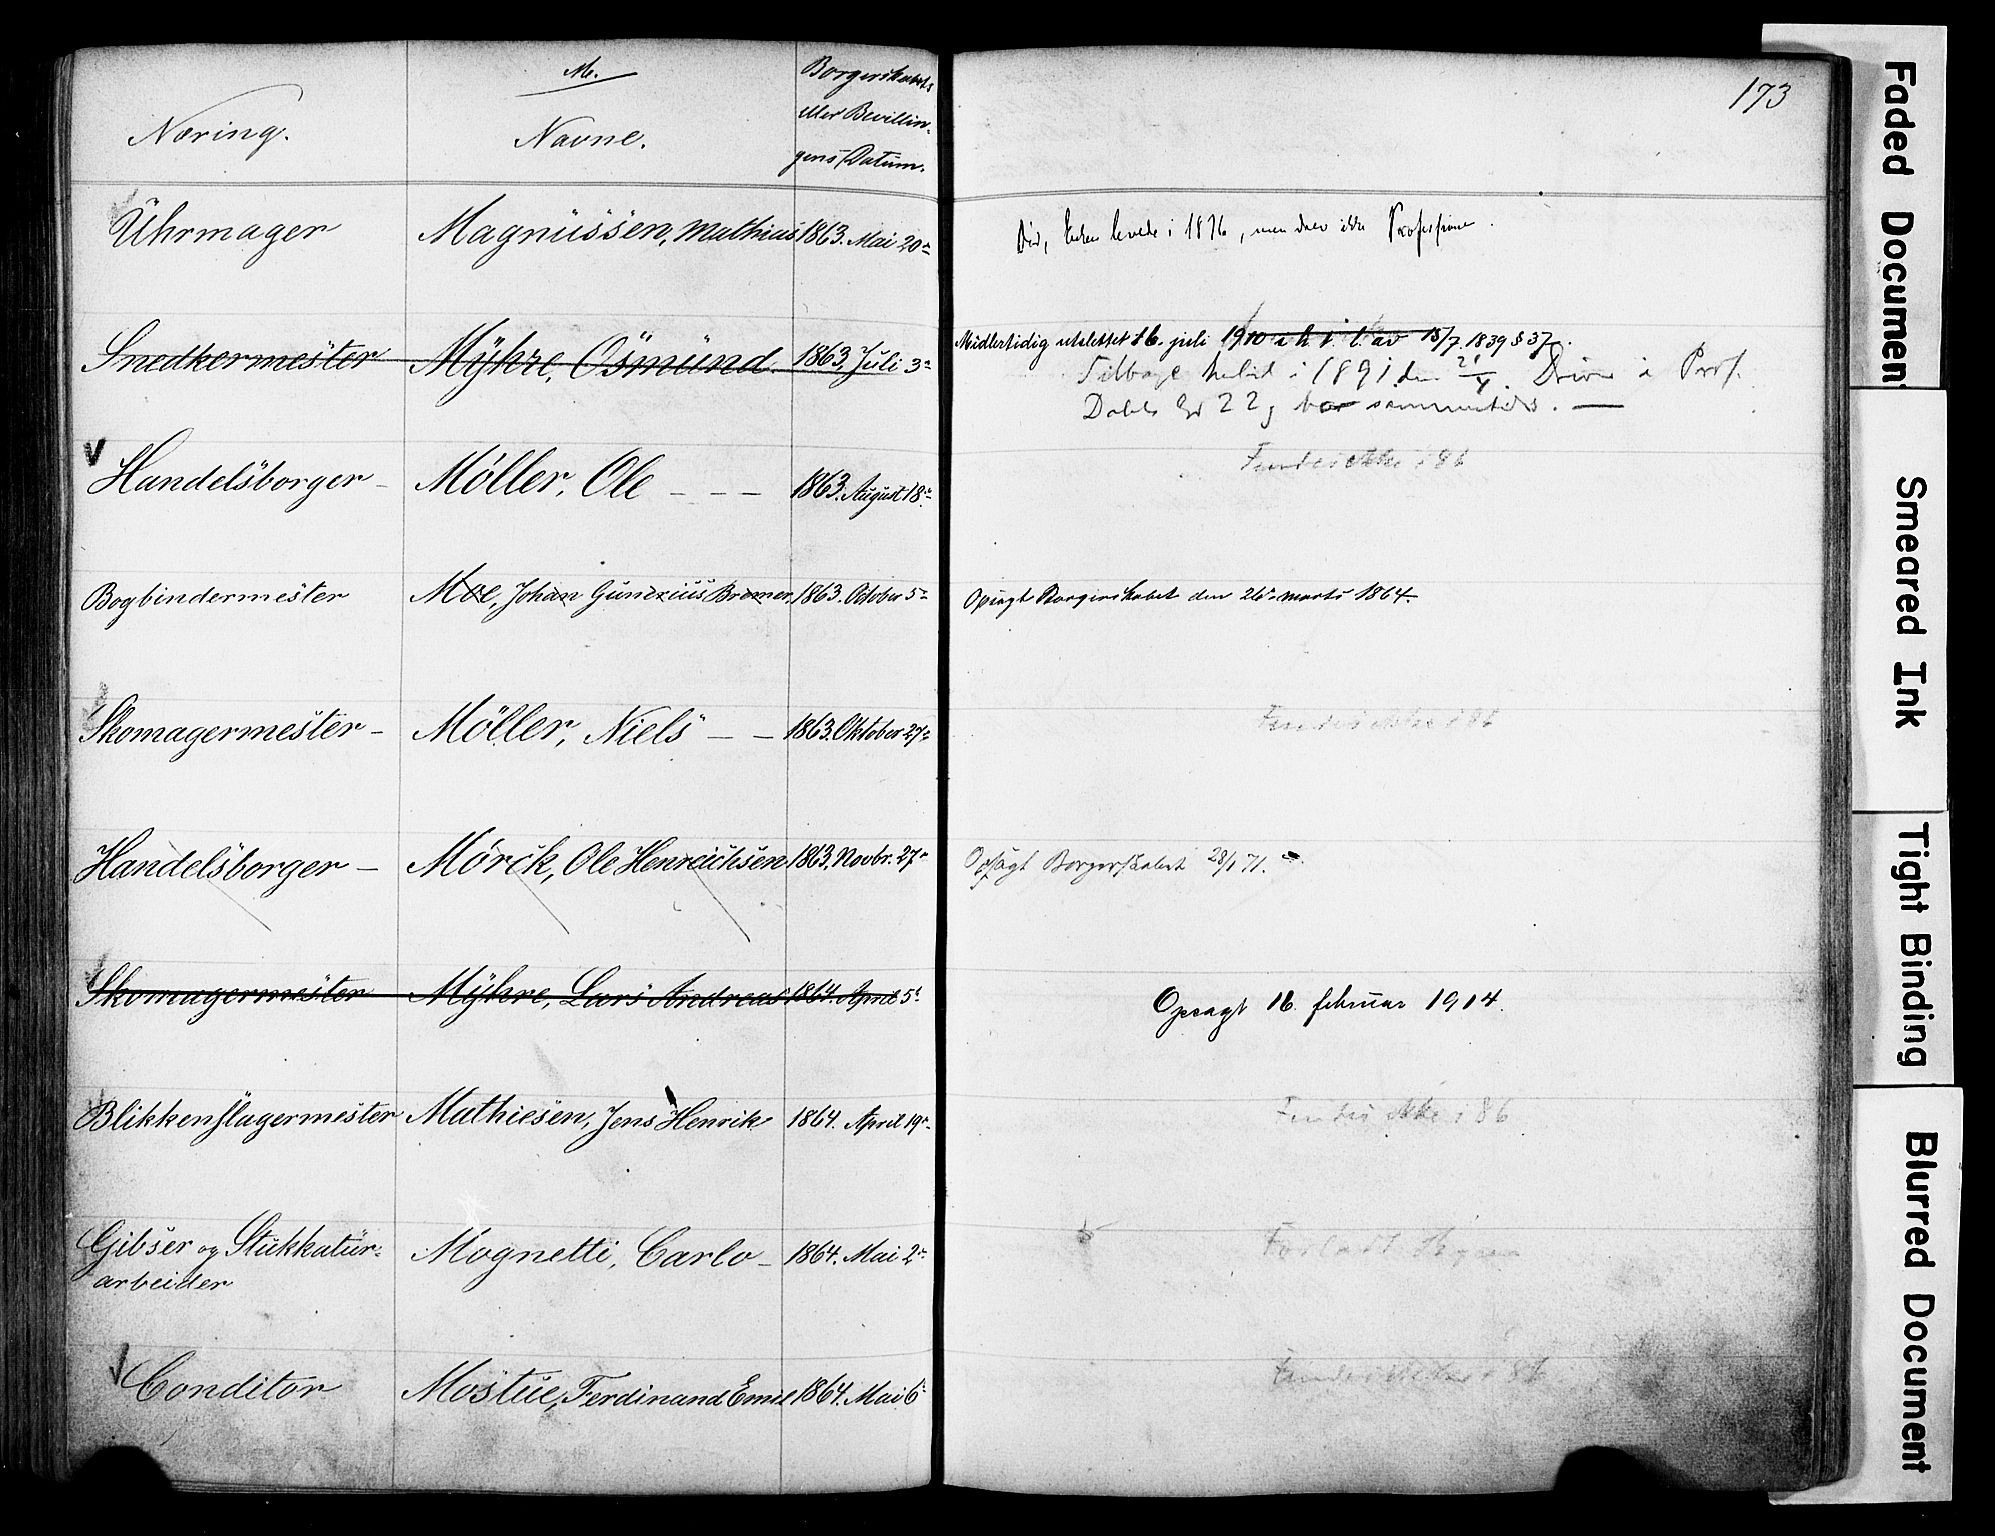 M.
Næring.
Navne.
Borgerskabets
eller Bevillin-
gens Datum.
173
Uhrmager Magnussen, Mathias 1863. Mai 20de
Død, Enken levede i 1876, men drev ikke Professionen.
Snedkermester Myhre, Osmund. 1863, Juli 3de
Midlertidig utslettet 16. juli 1910 i h t l av 15/7 1839 § 37.
Tilbage kaldt i 1891 den Driver i Prof.
Dahls Gd 22 sammesteds. —
Handelsborger - Möller, Ole - - - 1863. August 18de
Findes ikke i 86
Bogbindermester Moe, Johan Gunerius Bremer, 1863. October 5te
Opsagt Borgerskabet den 26de marts 1864.
Skomagermester - Möller, Niels - - 1863. Oktober 27de
Findes ikke i 86
Handelsborger - Mörck, Ole Henrichsen 1863. Novbr. 27de
Opsagt Borgerskabet 28/1 71.
Skomagermester Myhre, Lars Andreas 1864. April 5te
Opsagt 16. februar 1914.
Blikkenslagermester Mathiesen, Jens Henrik 1864. April 19de
Findes ikke i 86
Gibser og Stukkatur- Mognetti, Carlo - 1864. Mai 2den
arbeider
Forladt Byen
Conditor Mostue, Ferdinand Emil 1864. Mai 6te
Findes ikke i 86
Faded Document
Smeared Ink
Tight Binding
Blurred Document